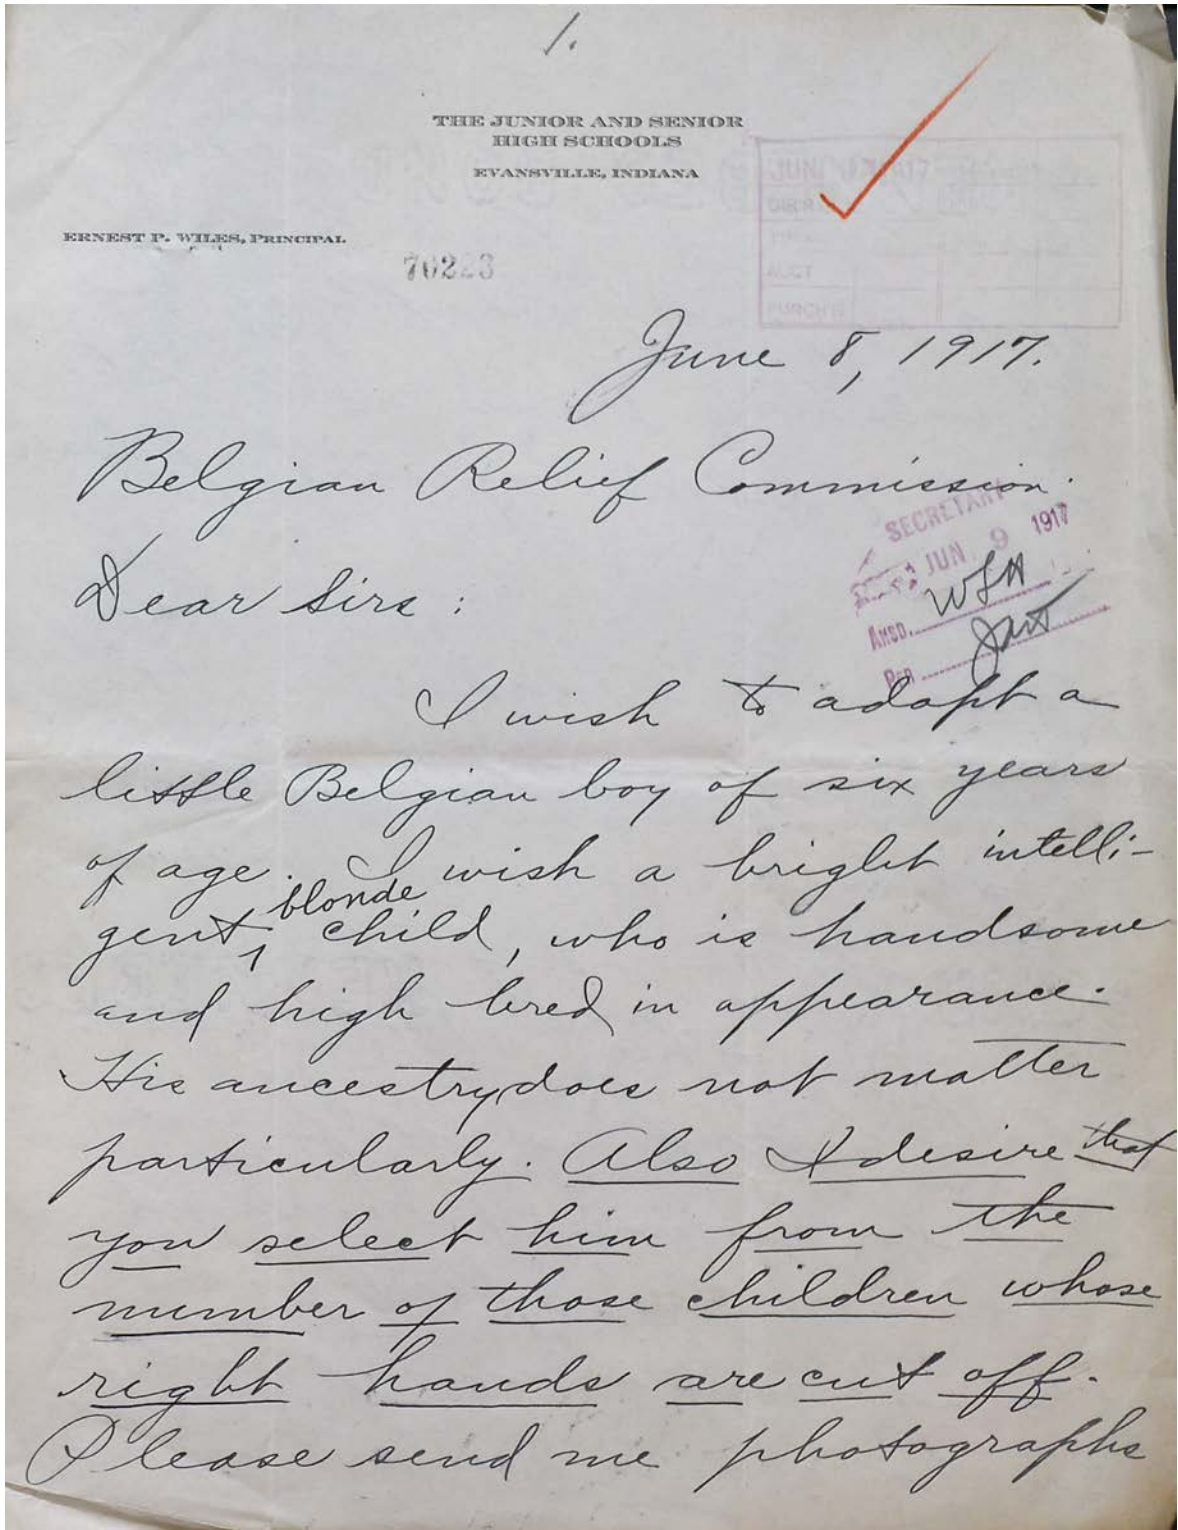 1.
THE JUNIOR AND SENIOR
HIGH SCHOOLS
EVANSVILLE, INDIANA
ERNEST P. WILES, PRINCIPAL
June 8, 1917.
Belgian Relief Commission.
SECRETARY
JUN 9 1917
Dear Sirs:
ANSD. WSH
PER
I wish to adopt a
little Belgian boy of six years
of age. I wish a bright intelli-
blonde
gent, child, who is handsome
and high bred in appearance.
His ancestry does not matter
particularly. Also I desire that
you select him from the
number of those children whose
right hands are cut off.
Please send me photographs